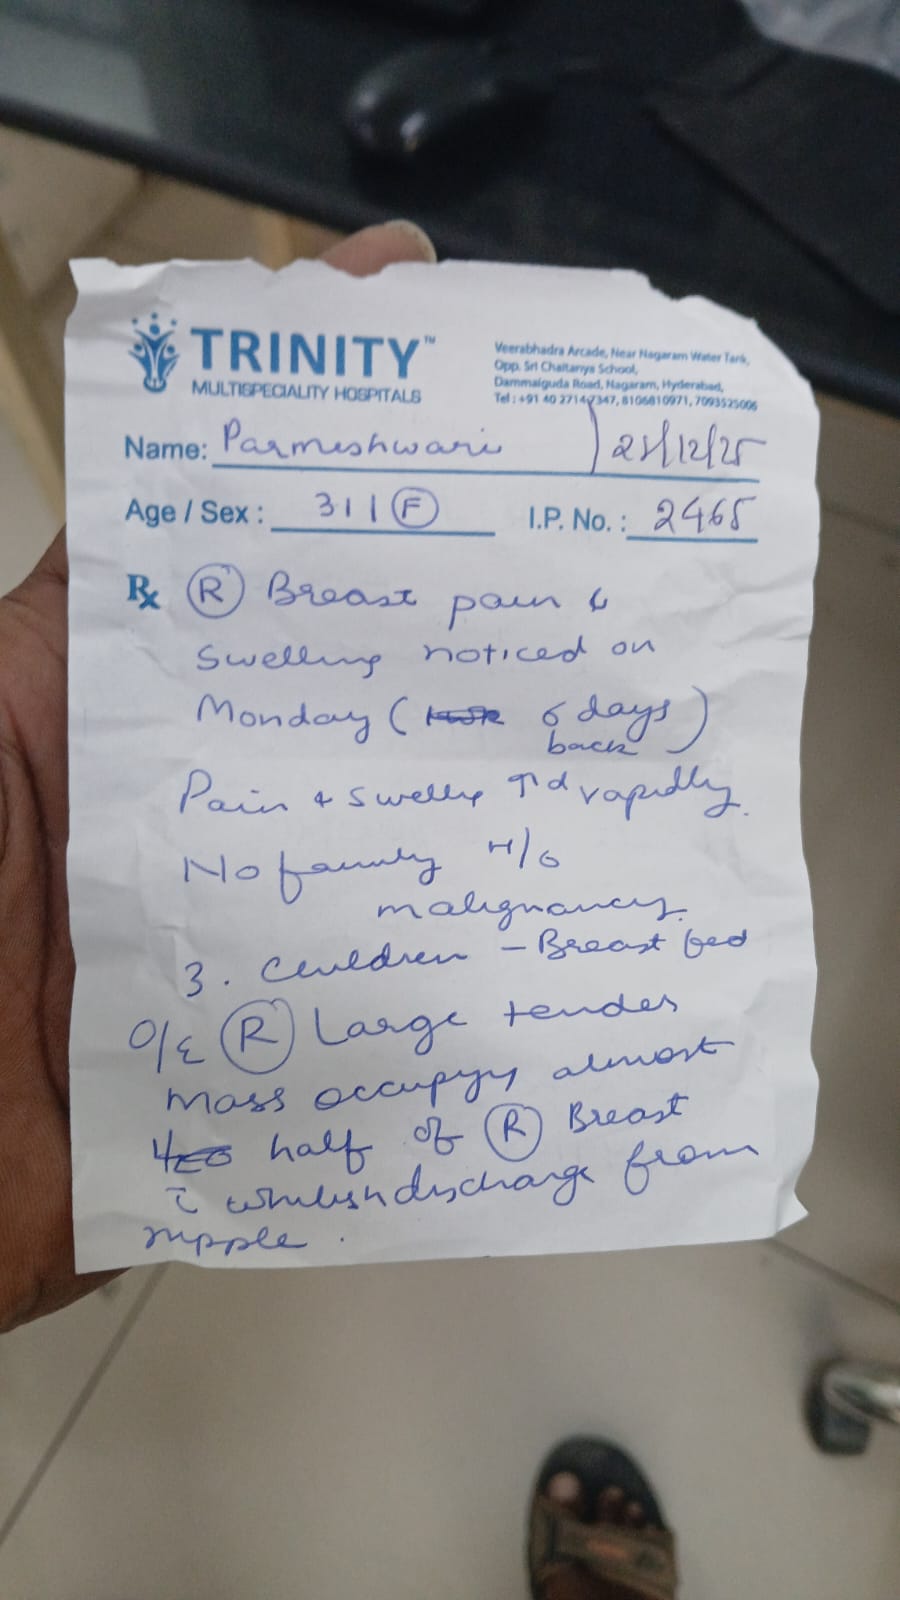 TRINITY™
MULTISPECIALITY HOSPITALS
Veerabhadra Arcade, Near Nagaram Water Tank,
Opp. Sri Chaitanya School,
Dammaiguda Road, Nagaram, Hyderabad,
Tel : +91 40 27147347, 8106810971, 7093525006
Name: Parmeshwari 21/12/25
Age / Sex : 31 / F I.P. No. : 2465
Rx R Breast pain &
swelling noticed on
Monday ( 6 days
back )
Pain & swelling ↑d rapidly.
No family H/o
malignancy.
3. Children - Breast fed
O/E R Large tender
mass occupying almost
half of R Breast
c̄ whitish discharge from
nipple.